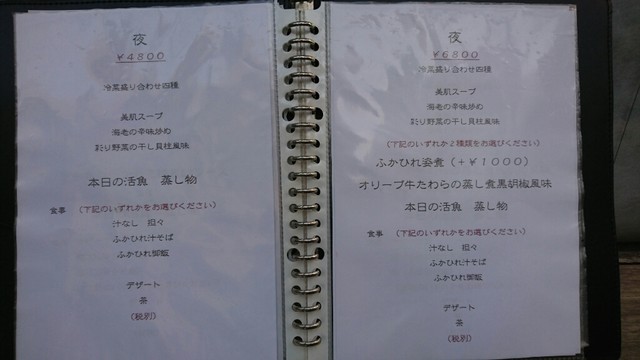 夜
￥4800
冷菜盛り合わせ四種
美肌スープ
海老の辛味炒め
彩り野菜の干し貝柱風味
本日の活魚　蒸し物
食事　（下記のいずれかをお選びください）
汁なし　担々
ふかひれ汁そば
ふかひれ御飯
デザート
茶
（税別）
夜
￥6800
冷菜盛り合わせ四種
美肌スープ
海老の辛味炒め
彩り野菜の干し貝柱風味
（下記のいずれか２種類をお選びください）
ふかひれ姿煮（＋￥1000）
オリーブ牛たわらの蒸し煮黒胡椒風味
本日の活魚　蒸し物
食事　（下記のいずれかをお選びください）
汁なし　担々
ふかひれ汁そば
ふかひれ御飯
デザート
茶
（税別）